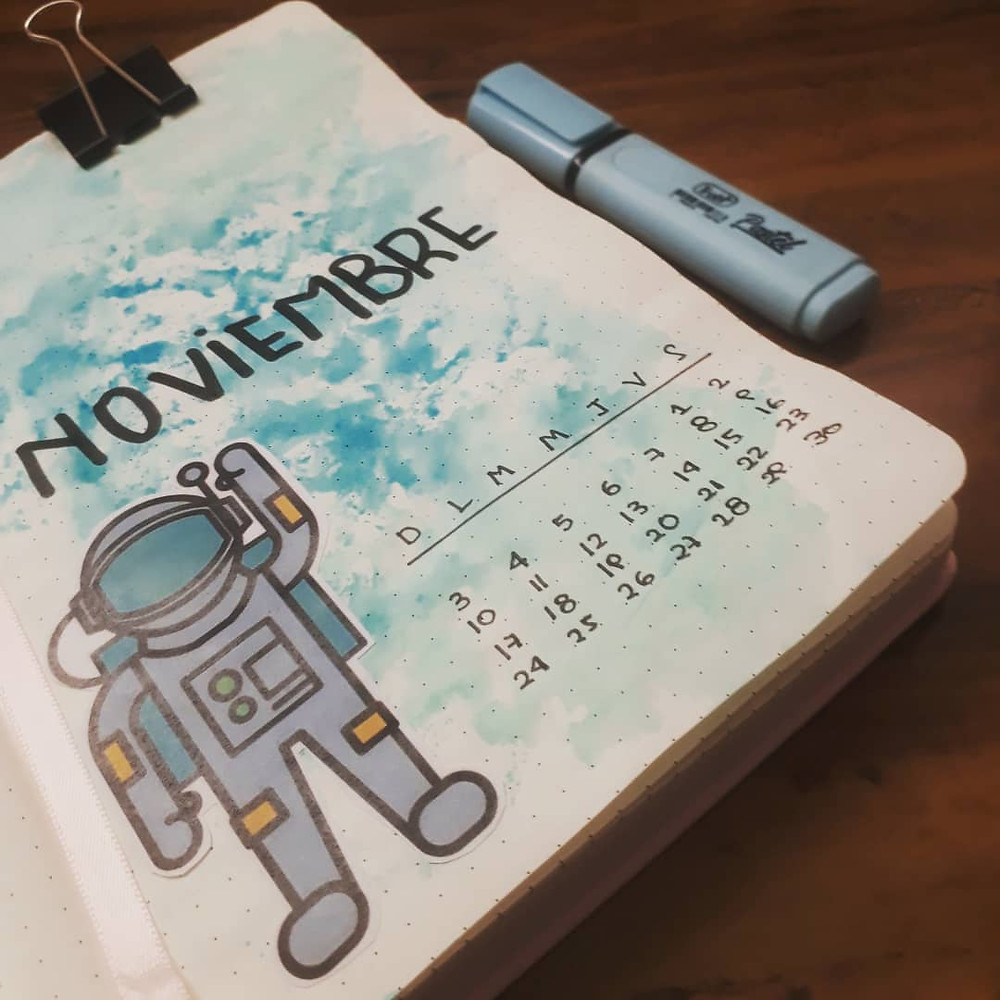 NOViEMBRE
D L M M J V S
1 2
3 4 5 6 7 8 9
10 11 12 13 14 15 16
17 18 19 20 21 22 23
24 25 26 27 28 29 30
Pastel